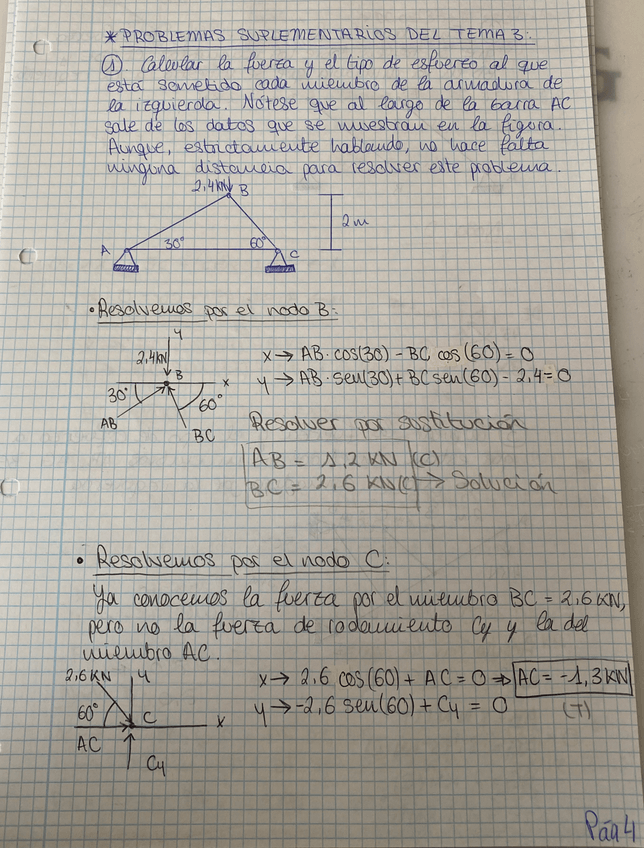 * PROBLEMAS SUPLEMENTARIOS DEL TEMA 3:
① Calcular la fuerza y el tipo de esfuerzo al que
está sometido cada miembro de la armadura de
la izquierda. Nótese que al largo de la barra AC
sale de los datos que se muestran en la figura.
Aunque, estrictamente hablando, no hace falta
ninguna distancia para resolver este problema.
2,4kN B
2m
A 30° 60° C
• Resolvemos por el nodo B:
y
2,4kN
B x
30° 60°
AB BC
x → AB·cos(30) - BC cos(60) = 0
y → AB·sen(30) + BC sen(60) - 2,4 = 0
Resolver por sustitución
AB = 1,2 KN (C)
BC = 2,6 KN (C) → Solución
• Resolvemos por el nodo C:
Ya conocemos la fuerza por el miembro BC = 2,6 KN,
pero no la fuerza de rodamiento Cy y la del
miembro AC.
2,6 KN y
60° C x
AC
Cy
x → 2,6 cos(60) + AC = 0 ⇒ AC = -1,3 KN
y → -2,6 sen(60) + Cy = 0 (T)
Pág 4